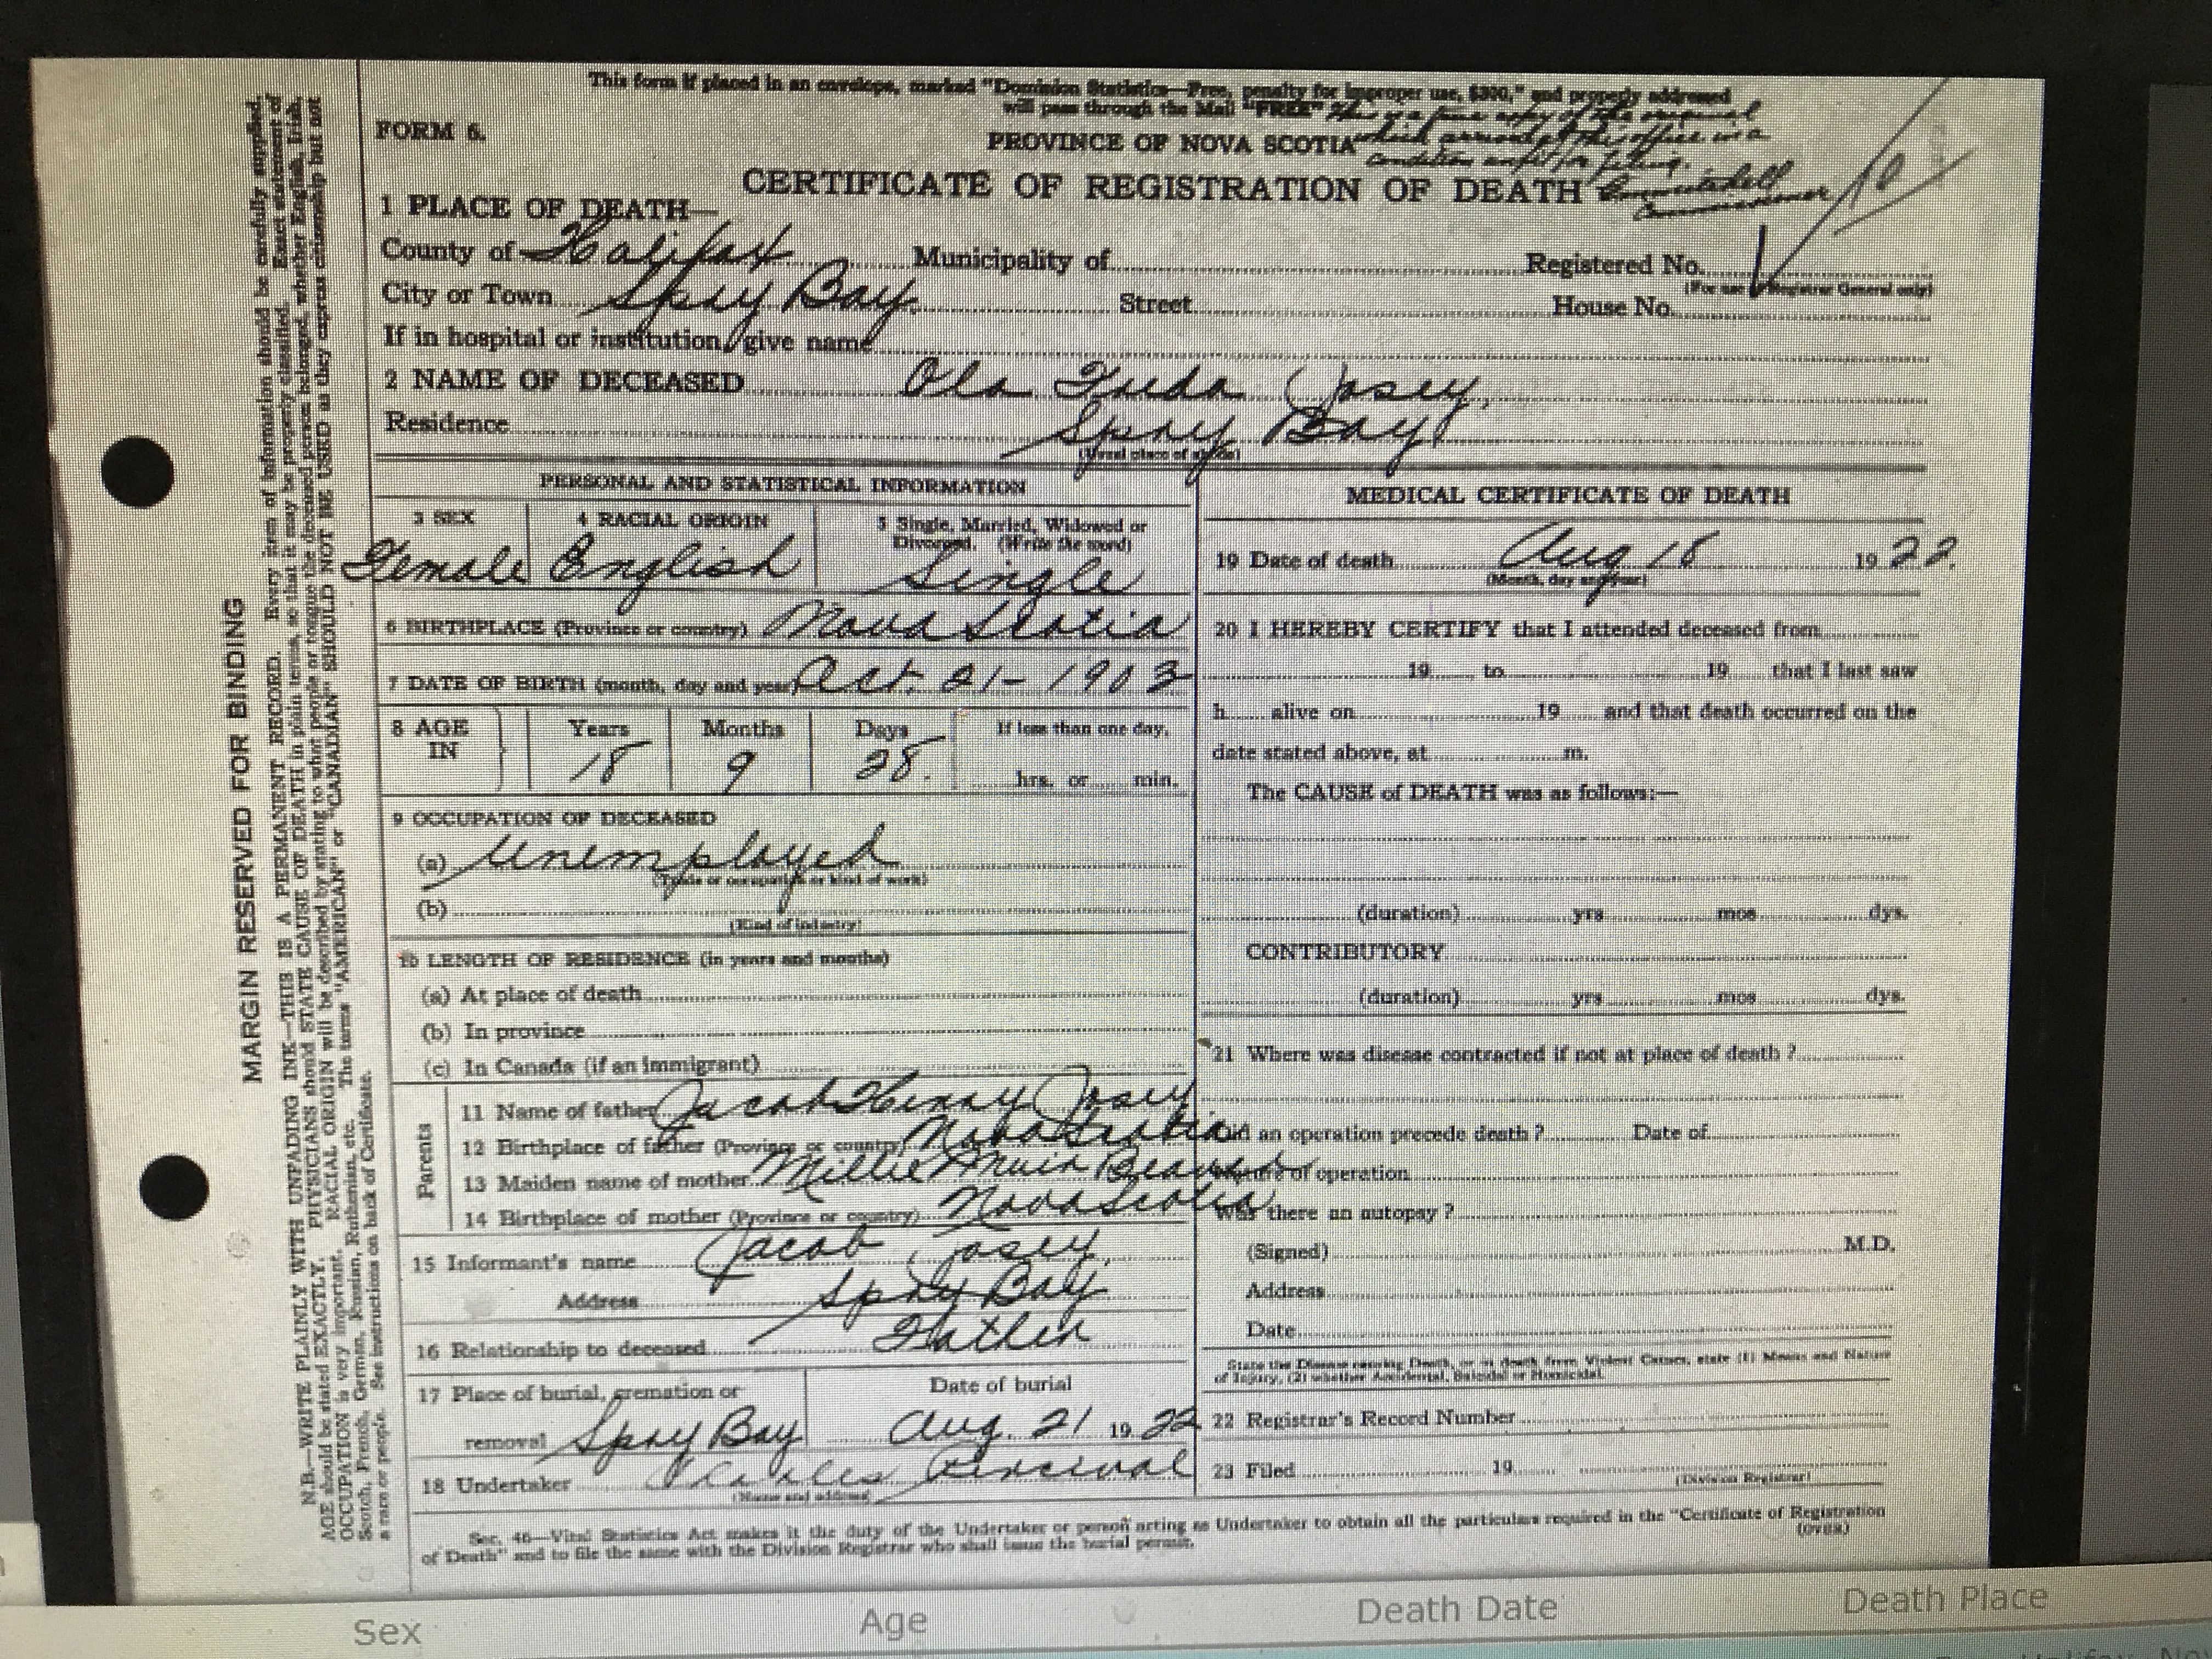 This form if placed in an envelope, marked "Dominion Statistics—Free, penalty for improper use, $300," and properly addressed
will pass through the Mail "FREE" This is a true copy of the original
which arrived at this office in a
condition unfit for filing.
FORM 6.
PROVINCE OF NOVA SCOTIA
CERTIFICATE OF REGISTRATION OF DEATH
1 PLACE OF DEATH—
County of Halifax Municipality of Registered No.
(For use of Registrar General only)
City or Town Spry Bay. Street House No.
If in hospital or institution, give name
2 NAME OF DECEASED Ola Josey,
Residence Spry Bay
(Usual place of abode)
PERSONAL AND STATISTICAL INFORMATION
3 SEX 4 RACIAL ORIGIN 5 Single, Married, Widowed or
Divorced. (Write the word)
Female English Single
6 BIRTHPLACE (Province or country) Nova Scotia
7 DATE OF BIRTH (month, day and year) Oct. 21-1903
8 AGE IN Years Months Days If less than one day,
18 9 28. hrs. or min.
9 OCCUPATION OF DECEASED
(a) Unemployed
(Trade or occupation or kind of work)
(b)
(Kind of industry)
10 LENGTH OF RESIDENCE (in years and months)
(a) At place of death
(b) In province
(c) In Canada (if an immigrant)
Parents
11 Name of father Jacob Henry Josey
12 Birthplace of father (Province or country) Nova Scotia
13 Maiden name of mother Millie
14 Birthplace of mother (Province or country) Nova Scotia
15 Informant's name Jacob Josey,
Address Spry Bay
16 Relationship to deceased Father
17 Place of burial, cremation or Date of burial
removal Spry Bay Aug. 21 1922
18 Undertaker Charles Percival
(Name and address)
MEDICAL CERTIFICATE OF DEATH
19 Date of death Aug 18 1922.
(Month, day and year)
20 I HEREBY CERTIFY that I attended deceased from
19 to 19 that I last saw
h alive on 19 and that death occurred on the
date stated above, at m.
The CAUSE of DEATH was as follows:—
(duration) yrs mos dys.
CONTRIBUTORY
(duration) yrs mos dys.
21 Where was disease contracted if not at place of death ?
an operation precede death ? Date of
of operation
Was there an autopsy ?
(Signed) M.D.
Address
Date
State the Disease causing Death, or in death from Violent Causes, state (1) Means and Nature
of Injury, (2) whether Accidental, Suicidal or Homicidal.
22 Registrar's Record Number
23 Filed 19
(Division Registrar)
Sec. 46—Vital Statistics Act makes it the duty of the Undertaker or person acting as Undertaker to obtain all the particulars required in the "Certificate of Registration
of Death" and to file the same with the Division Registrar who shall issue the burial permit.
(OVER)
MARGIN RESERVED FOR BINDING
N.B.—WRITE PLAINLY WITH UNFADING INK—THIS IS A PERMANENT RECORD. Every item of information should be carefully supplied.
AGE should be stated EXACTLY. PHYSICIANS should STATE CAUSE OF DEATH in plain terms, so that it may be properly classified. Exact statement of
OCCUPATION is very important. RACIAL ORIGIN will be described by stating to what people or tongue the deceased person belonged, whether English, Irish,
Scotch, French, German, Russian, Ruthenian, etc. The terms "AMERICAN" or "CANADIAN" SHOULD NOT BE USED as they express citizenship but not
a race or people. See instructions on back of Certificate.
Sex Age Death Date Death Place